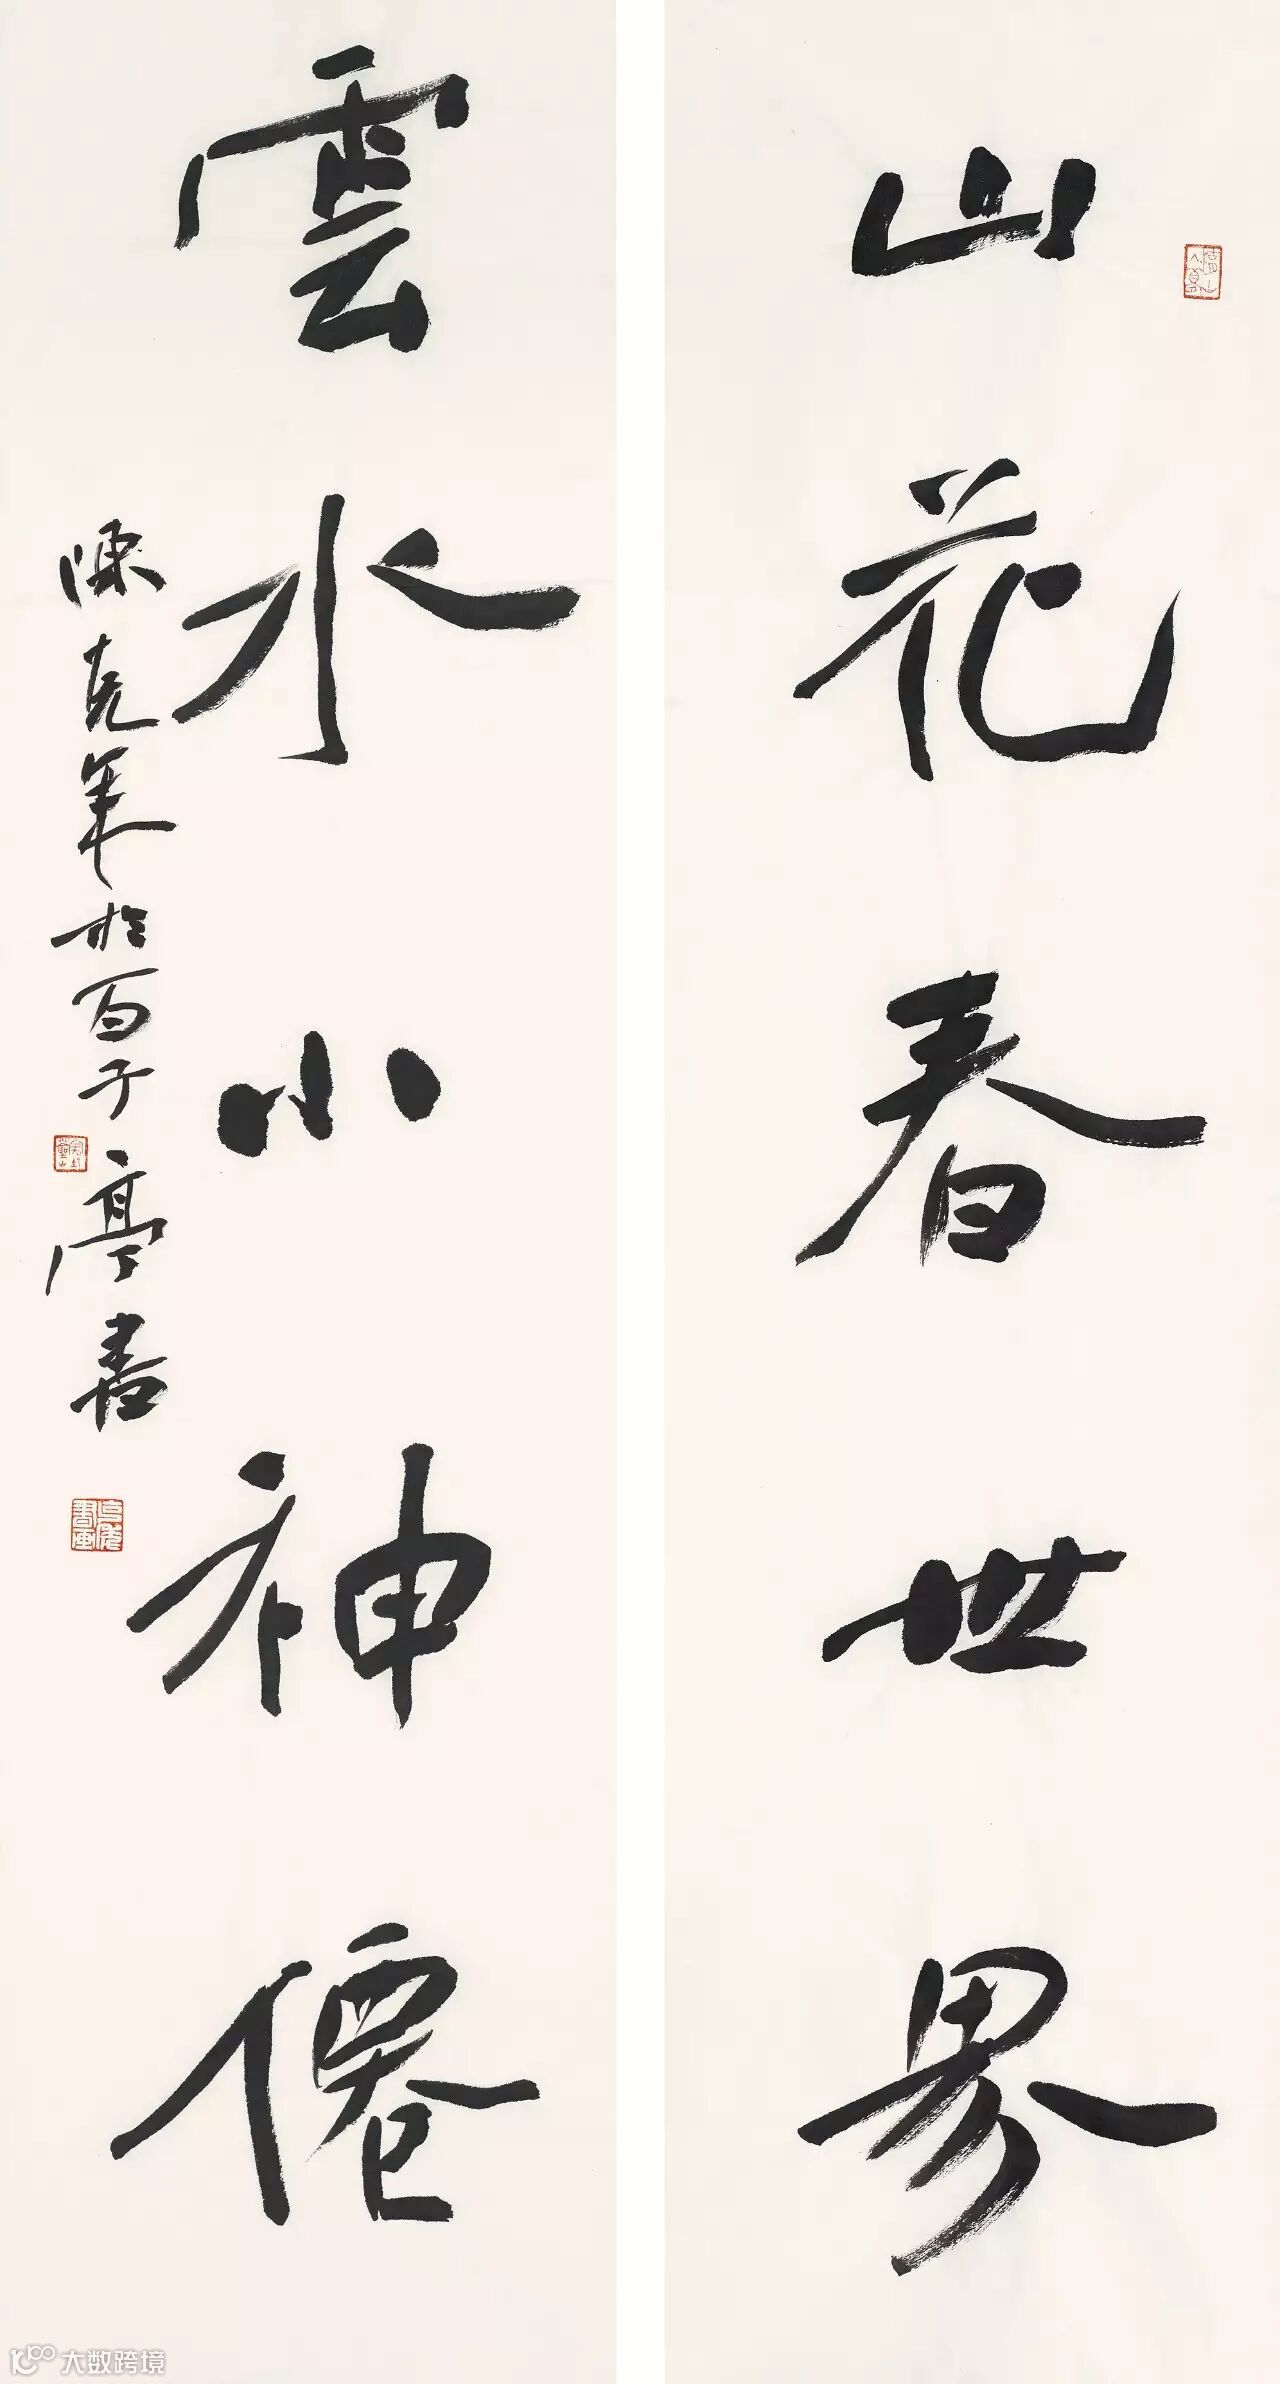 山花春世界
雲水小神僊
陳克年於百子亭書
大数跨境